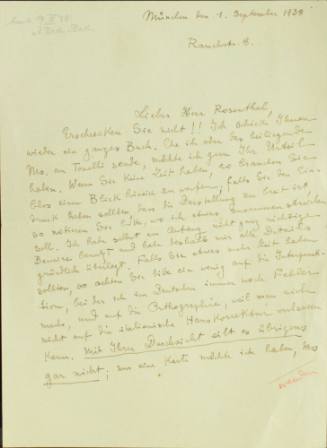 München den 1. September 1938
Rauchstr. 8.
Lieber Herr Rosenthal,
Erschrecken Sie nicht!! Ich schicke Ihnen
wieder ein ganzes Buch. Ehe ich aber das beiliegende
Ms. an Toselli sende, möchte ich gern Ihr Urteil
haben. Wenn Sie keine Zeit haben, so brauchen Sie
bloss einen Blick hinein zu werfen; falls Sie den Ein-
druck haben sollten, dass die Darstellung zu breit ist
so notieren Sie bitte, wo ich etwas zusammenstreichen
soll. Ich habe selbst am Anfang nicht ganz richtige
Beweise und habe deshalb mir alle Details
gründlich überlegt. Falls Sie etwas mehr Zeit haben
sollten, so achten Sie bitte ein wenig auf die Interpunk-
tion, bei der ich im Deutschen immer noch Fehler
mache, und auf die Orthographie, weil man sich
nicht auf die italienische Hauskorrektur verlassen
kann. Mit Ihrer Durchsicht eilt es übrigens
gar nicht; nur eine Karte möchte ich haben,
wenden